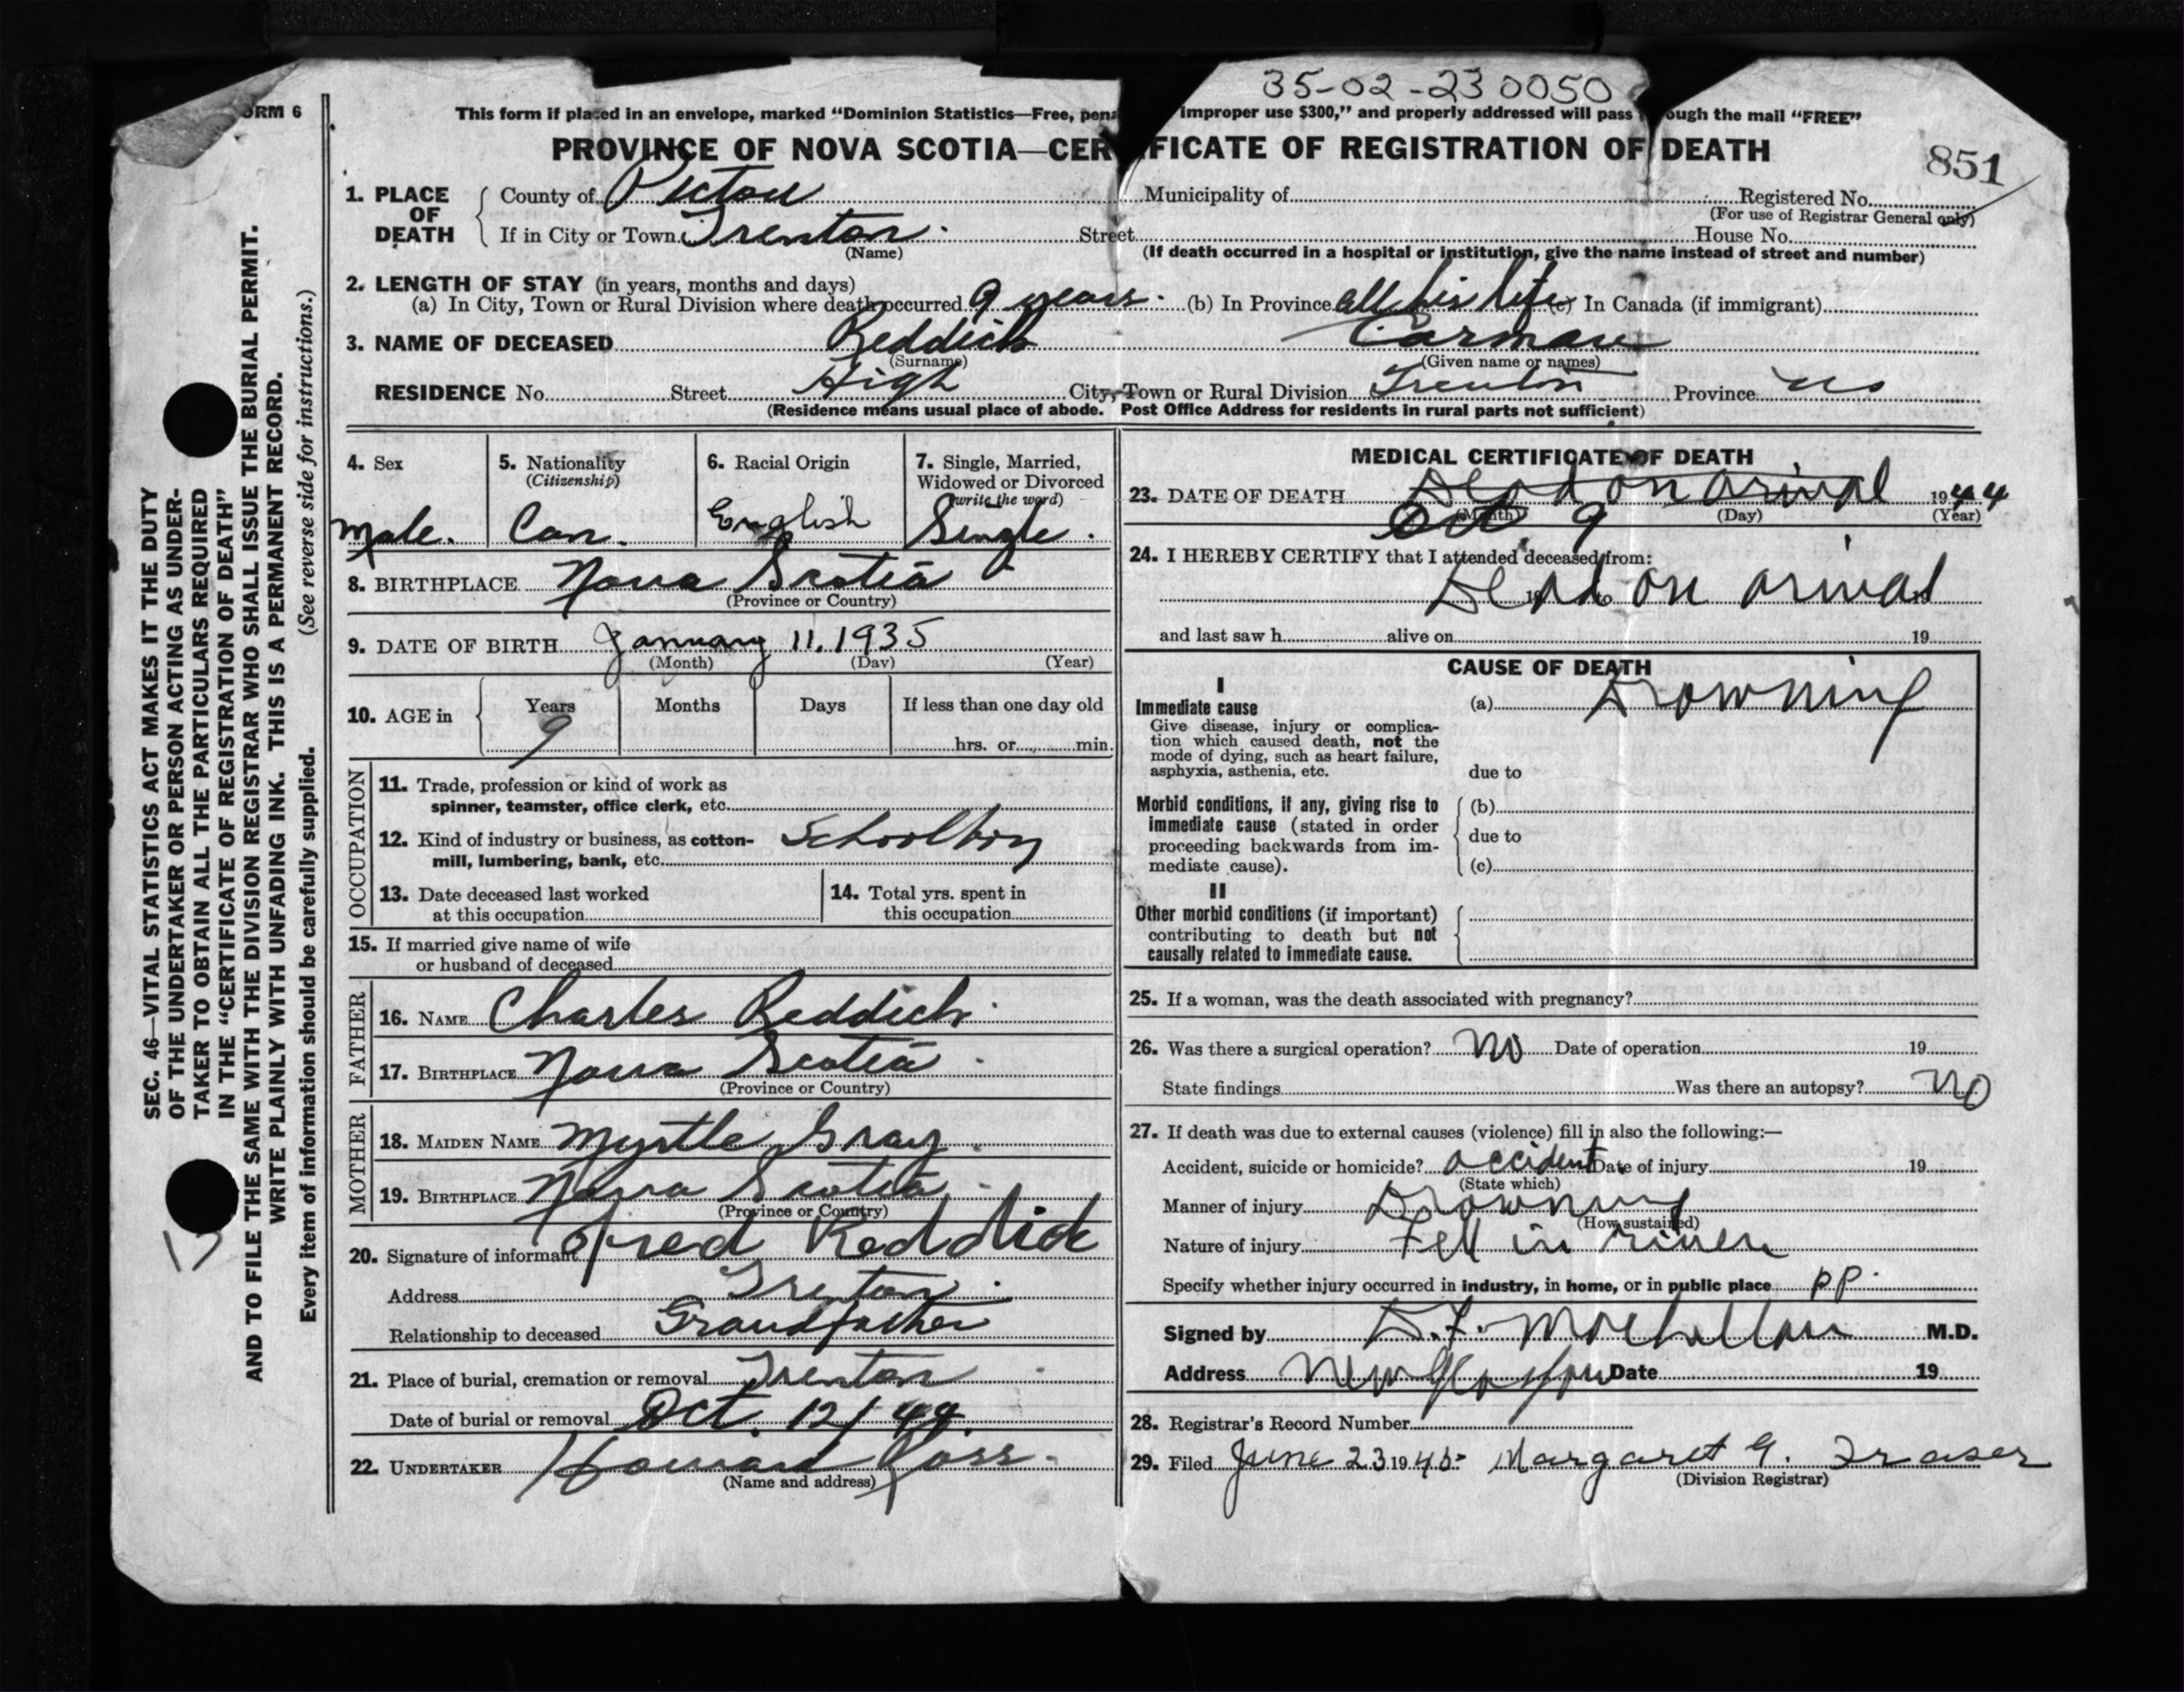 35-02-23 0050
ORM 6
This form if placed in an envelope, marked "Dominion Statistics—Free, pena improper use $300," and properly addressed will pass ough the mail "FREE"
PROVINCE OF NOVA SCOTIA—CER FICATE OF REGISTRATION OF DEATH
851
1. PLACE OF DEATH
County of Pictou Municipality of Registered No.
(For use of Registrar General only)
If in City or Town Trenton. Street House No.
(Name) (If death occurred in a hospital or institution, give the name instead of street and number)
2. LENGTH OF STAY (in years, months and days)
(a) In City, Town or Rural Division where death occurred 9 years. (b) In Province all his life (c) In Canada (if immigrant)
3. NAME OF DECEASED Reddick Carman
(Surname) (Given name or names)
RESIDENCE No. Street High City, Town or Rural Division Trenton Province NS
(Residence means usual place of abode. Post Office Address for residents in rural parts not sufficient)
4. Sex
Male.
5. Nationality
(Citizenship)
Can.
6. Racial Origin
English
7. Single, Married,
Widowed or Divorced
(write the word)
Single.
8. BIRTHPLACE Nova Scotia
(Province or Country)
9. DATE OF BIRTH January 11. 1935
(Month) (Day) (Year)
10. AGE in Years Months Days If less than one day old
9 hrs. or min.
OCCUPATION
11. Trade, profession or kind of work as
spinner, teamster, office clerk, etc.
12. Kind of industry or business, as cotton-
mill, lumbering, bank, etc. Schoolboy
13. Date deceased last worked
at this occupation
14. Total yrs. spent in
this occupation
15. If married give name of wife
or husband of deceased
FATHER
16. NAME Charles Reddick.
17. BIRTHPLACE Nova Scotia.
(Province or Country)
MOTHER
18. MAIDEN NAME Myrtle Gray.
19. BIRTHPLACE Nova Scotia.
(Province or Country)
20. Signature of informant Fred Reddick
Address Trenton.
Relationship to deceased Grandfather
21. Place of burial, cremation or removal Trenton.
Date of burial or removal Oct. 12/44.
22. UNDERTAKER Howard Ross.
(Name and address)
MEDICAL CERTIFICATE OF DEATH
23. DATE OF DEATH Dead on arival 1944
(Month) (Day) (Year)
Oct 9
24. I HEREBY CERTIFY that I attended deceased from:
Dead on arival
19 to 19
and last saw h alive on 19
CAUSE OF DEATH
I
Immediate cause
Give disease, injury or complica-
tion which caused death, not the
mode of dying, such as heart failure,
asphyxia, asthenia, etc.
(a) Drowning
due to
Morbid conditions, if any, giving rise to
immediate cause (stated in order
proceeding backwards from im-
mediate cause).
(b)
due to
(c)
II
Other morbid conditions (if important)
contributing to death but not
causally related to immediate cause.
25. If a woman, was the death associated with pregnancy?
26. Was there a surgical operation? No Date of operation 19
State findings Was there an autopsy? No
27. If death was due to external causes (violence) fill in also the following:—
Accident, suicide or homicide? accident Date of injury 19
(State which)
Manner of injury Drowning
(How sustained)
Nature of injury Fell in river
Specify whether injury occurred in industry, in home, or in public place pp.
Signed by D.F. M.D.
Address New Glasgow Date 19
28. Registrar's Record Number
29. Filed June 23 1945 Margaret G. Fraser
(Division Registrar)
SEC. 46—VITAL STATISTICS ACT MAKES IT THE DUTY
OF THE UNDERTAKER OR PERSON ACTING AS UNDER-
TAKER TO OBTAIN ALL THE PARTICULARS REQUIRED
IN THE "CERTIFICATE OF REGISTRATION OF DEATH"
AND TO FILE THE SAME WITH THE DIVISION REGISTRAR WHO SHALL ISSUE THE BURIAL PERMIT.
WRITE PLAINLY WITH UNFADING INK. THIS IS A PERMANENT RECORD.
Every item of information should be carefully supplied. (See reverse side for instructions.)